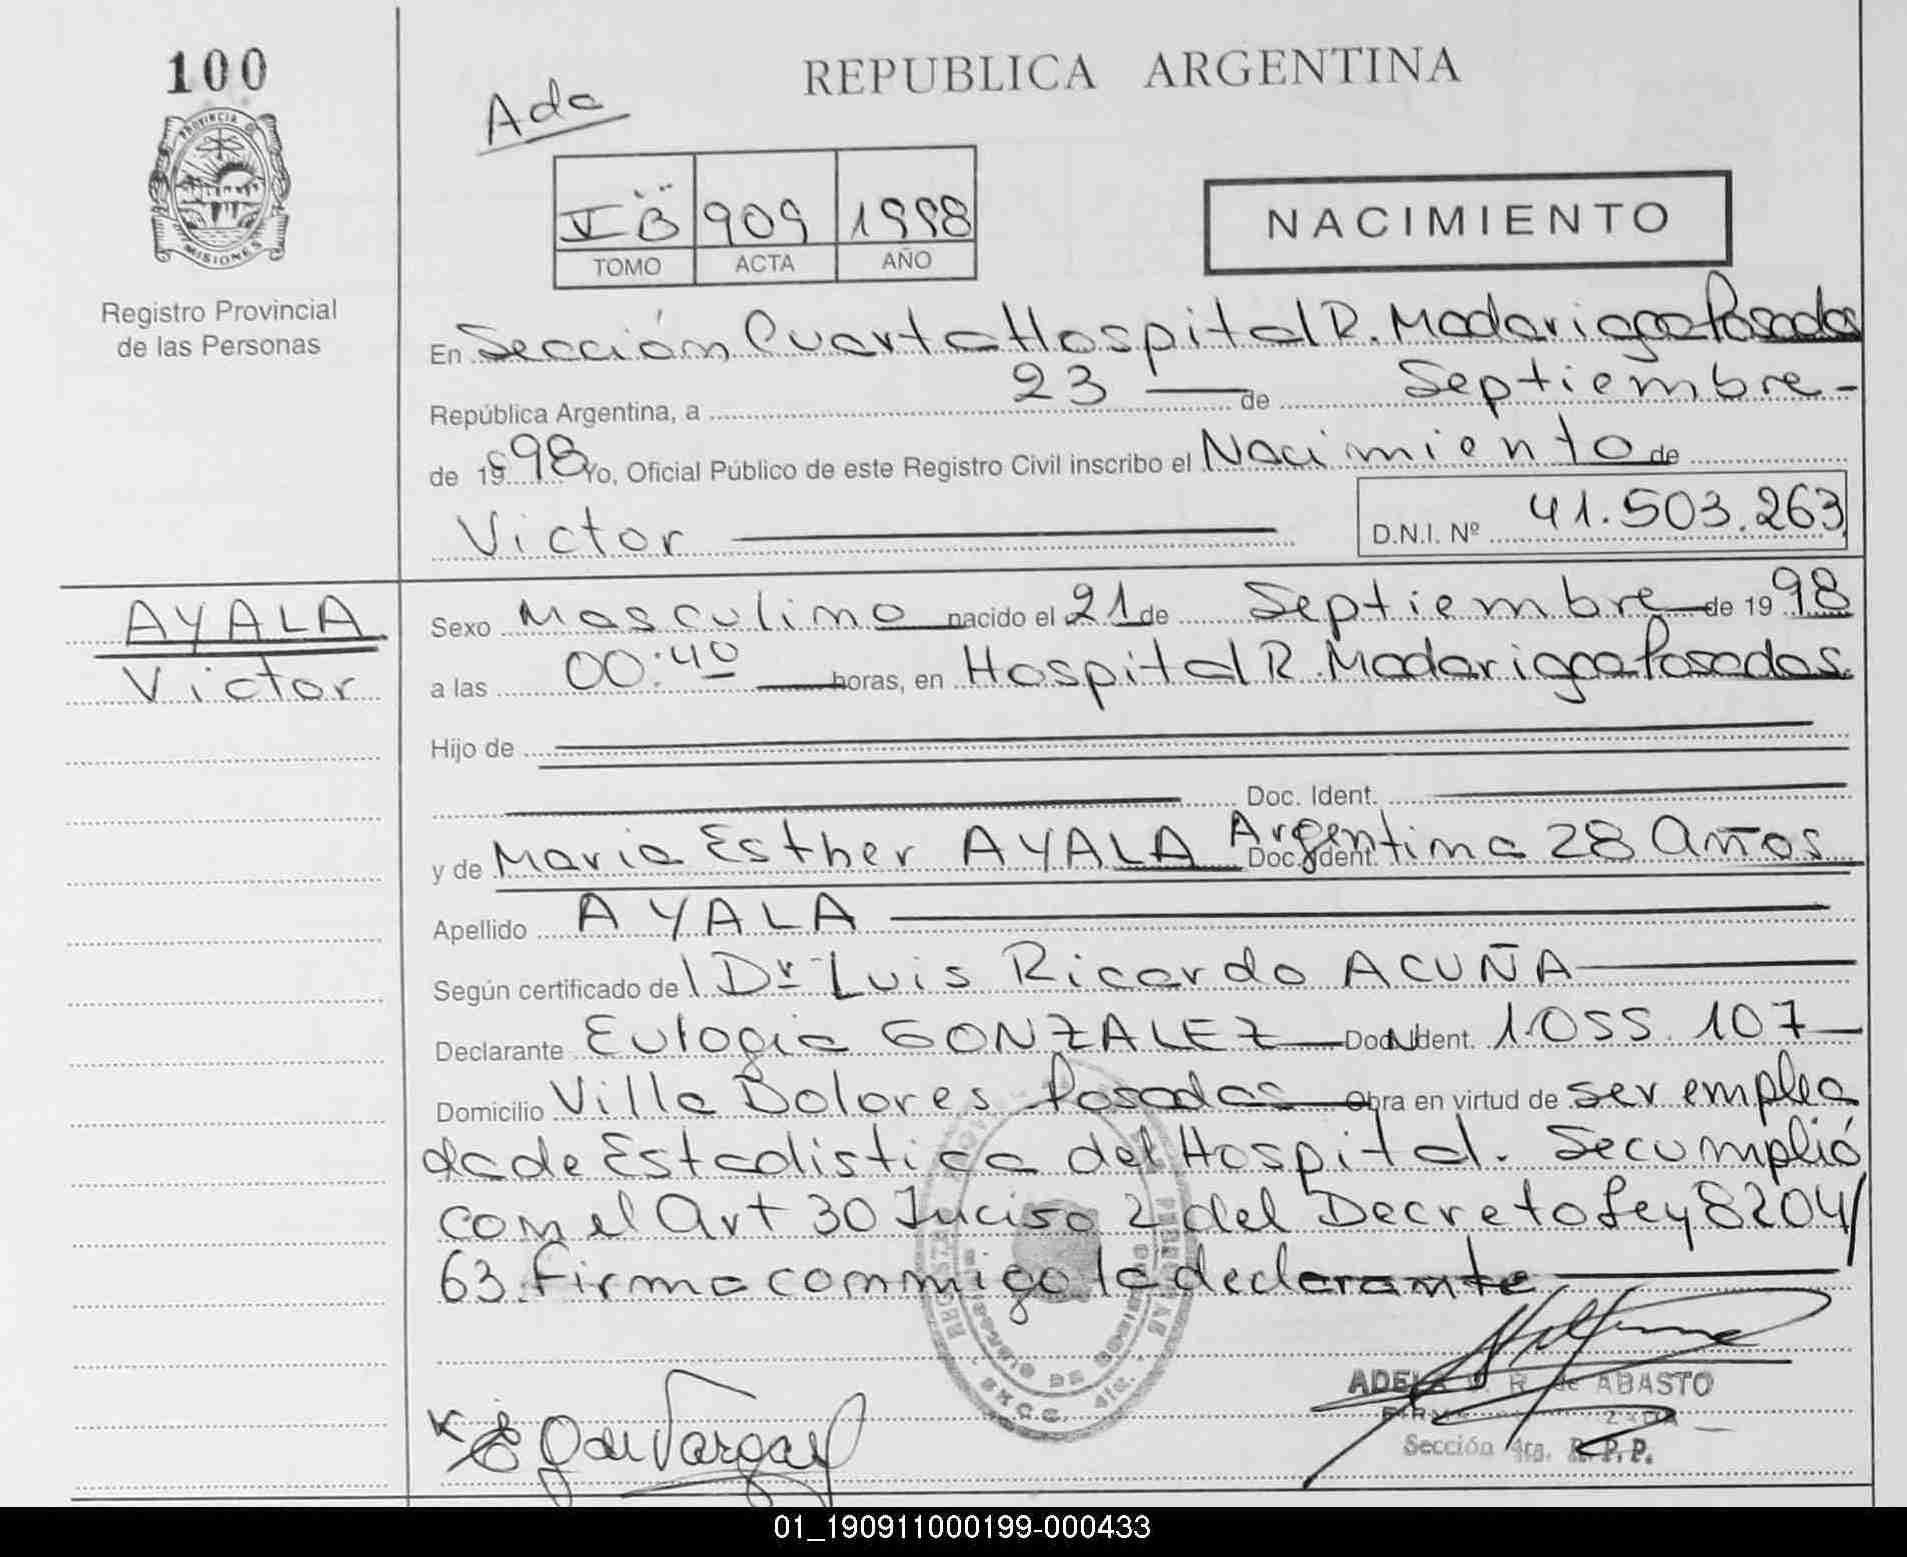 100
REPUBLICA ARGENTINA
Ada
PROVINCIA DE
MISIONES
V B 909 1998
TOMO ACTA AÑO
NACIMIENTO
Registro Provincial
de las Personas
En Sección Cuarta Hospital R. Madariaga Posadas
República Argentina, a 23 de Septiembre
de 1998 Yo, Oficial Público de este Registro Civil inscribo el Nacimiento de
Victor D.N.I. Nº 41.503.263
AYALA
Victor
Sexo Masculino nacido el 21 de Septiembre de 1998
a las 00:40 horas, en Hospital R. Madariaga Posadas
Hijo de
Doc. Ident.
y de Maria Esther AYALA Doc. Ident. Argentina 28 Años
Apellido AYALA
Según certificado de l Dr Luis Ricardo ACUÑA
Declarante Eulogia GONZALEZ Doc. Ident. 1.055.107
Domicilio Villa Dolores Posadas Obra en virtud de ser emplea
da de Estadistica del Hospital. Se cumplió
con el Art 30 Inciso 2 del Decreto Ley 8204/
63. Firma conmigo la declarante
ADELA R. de ABASTO
Sección 4ta. R.P.P.
01_190911000199-000433